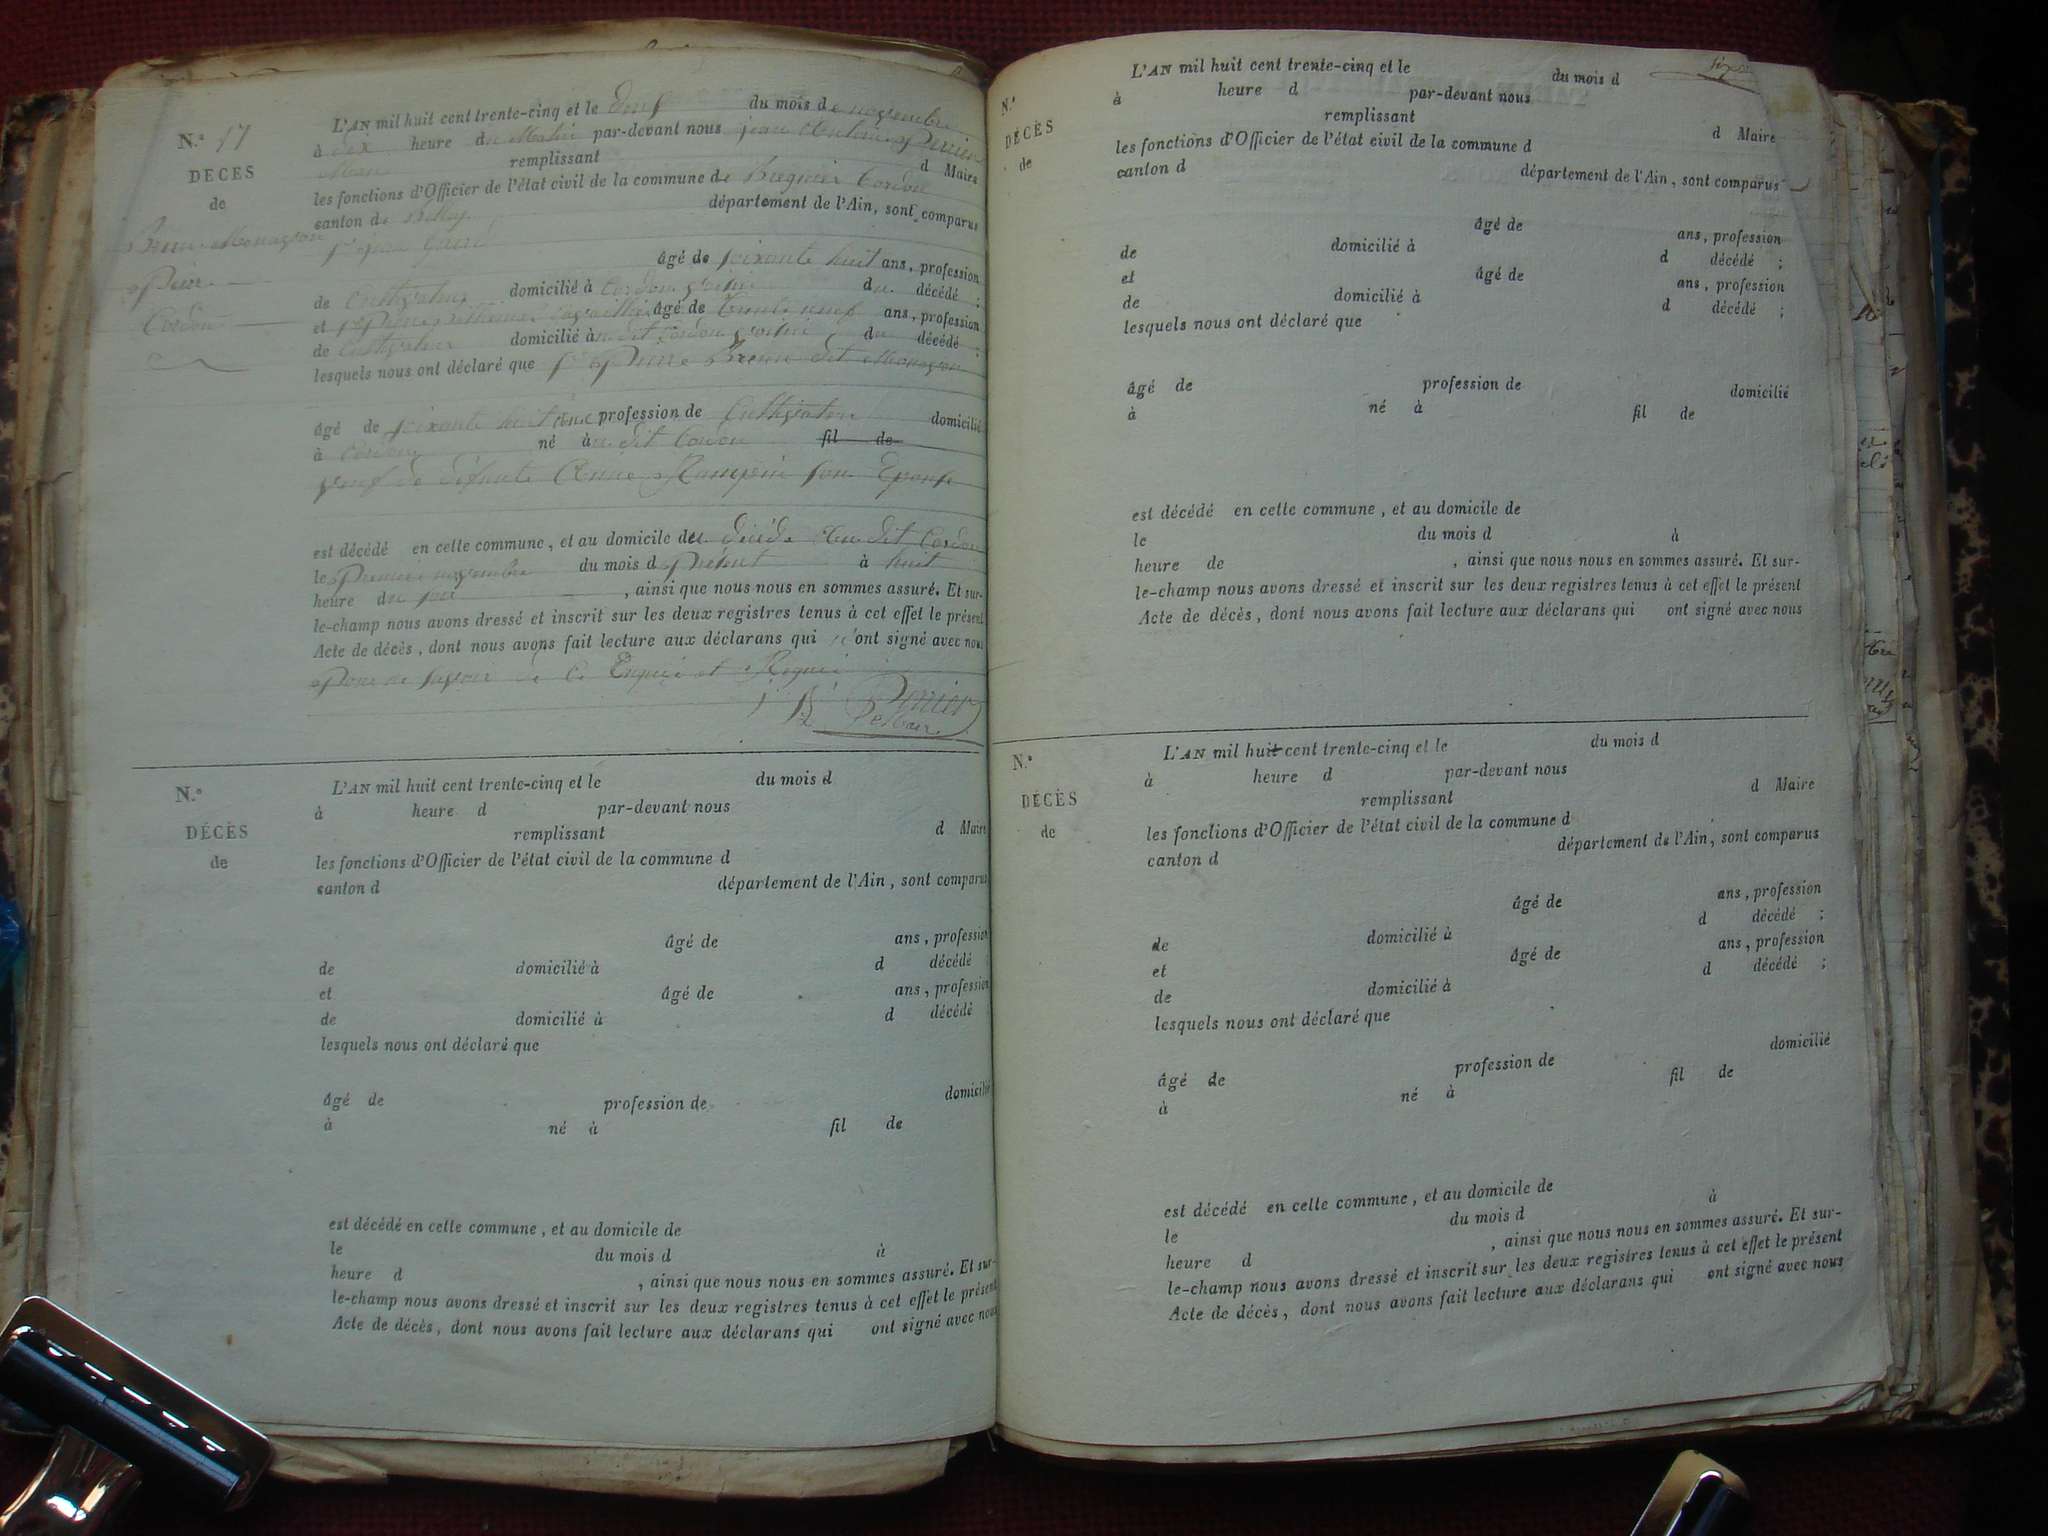 N.° 17
DÉCÈS
de
Pierre
Cordon
L'AN mil huit cent trente-cinq et le deux du mois de novembre
à dix heure du Matin par-devant nous jean Perrier
Maire remplissant d Maire
les fonctions d'Officier de l'état civil de la commune de Bregnier Cordon
canton de Belley département de l'Ain, sont comparus
âgé de soixante huit ans, profession
de Cultivateur domicilié à Cordon voisin du décédé ;
et âgé de trente neuf ans, profession
de Cultivateur domicilié à u dit Cordon voisin du décédé ;
lesquels nous ont déclaré que Pierre dit
âgé de soixante huit ans profession de Cultivateur domicilié
à Cordon né à u dit Cordon fil de
veuf de défunte Anne son Epouse
est décédé en cette commune, et au domicile de u décédé au dit Cordon
le Premier novembre du mois d Présent à huit
heure du soir , ainsi que nous nous en sommes assuré. Et sur-
le-champ nous avons dressé et inscrit sur les deux registres tenus à cet effet le présent
Acte de décès, dont nous avons fait lecture aux déclarans qui n'ont signé avec nous
Pour ne savoir de ce Enquis et Requis
Perrier
N.°
DÉCÈS
de
L'AN mil huit cent trente-cinq et le du mois d
à heure d par-devant nous
remplissant d Maire
les fonctions d'Officier de l'état civil de la commune d
canton d département de l'Ain, sont comparus
âgé de ans, profession
de domicilié à d décédé ;
et âgé de ans, profession
de domicilié à d décédé
lesquels nous ont déclaré que
âgé de profession de domicilié
à né à fil de
est décédé en cette commune, et au domicile de
le du mois d à
heure d , ainsi que nous nous en sommes assuré. Et sur-
le-champ nous avons dressé et inscrit sur les deux registres tenus à cet effet le présent
Acte de décès, dont nous avons fait lecture aux déclarans qui ont signé avec nous
N.°
DÉCÈS
de
L'AN mil huit cent trente-cinq et le du mois d
à heure d par-devant nous
remplissant d Maire
les fonctions d'Officier de l'état civil de la commune d
canton d département de l'Ain, sont comparus
âgé de ans, profession
de domicilié à d décédé ;
et âgé de ans, profession
de domicilié à d décédé ;
lesquels nous ont déclaré que
âgé de profession de domicilié
à né à fil de
est décédé en cette commune, et au domicile de
le du mois d à
heure de , ainsi que nous nous en sommes assuré. Et sur-
le-champ nous avons dressé et inscrit sur les deux registres tenus à cet effet le présent
Acte de décès, dont nous avons fait lecture aux déclarans qui ont signé avec nous
N.°
DÉCÈS
de
L'AN mil huit cent trente-cinq et le du mois d
à heure d par-devant nous
remplissant d Maire
les fonctions d'Officier de l'état civil de la commune d
canton d département de l'Ain, sont comparus
âgé de ans, profession
de domicilié à d décédé ;
et âgé de ans, profession
de domicilié à d décédé ;
lesquels nous ont déclaré que
âgé de profession de domicilié
à né à fil de
est décédé en cette commune, et au domicile de
le du mois d à
heure d , ainsi que nous nous en sommes assuré. Et sur-
le-champ nous avons dressé et inscrit sur les deux registres tenus à cet effet le présent
Acte de décès, dont nous avons fait lecture aux déclarans qui ont signé avec nous